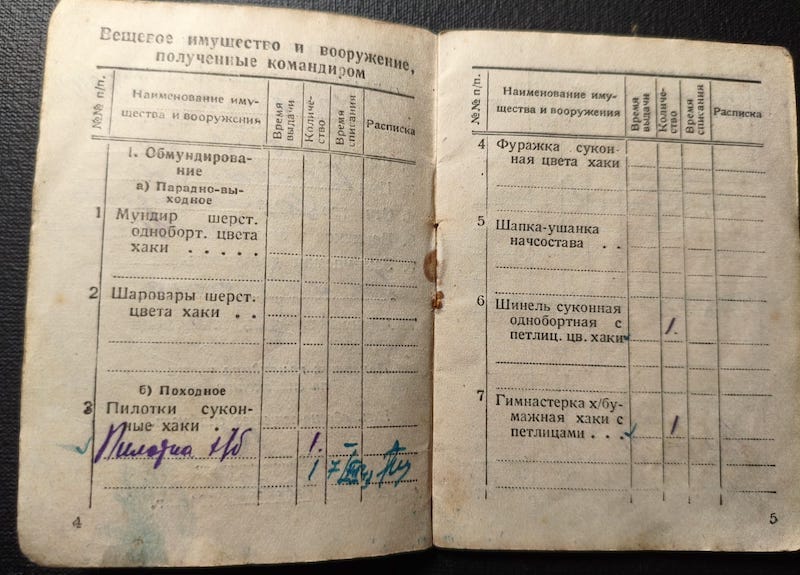 Вещевое имущество и вооружение,
полученные командиром
№№ п/п.
Наименование иму-
щества и вооружения
Время
выдачи
Количе-
ство
Время
списания
Расписка
1. Обмундирова-
ние
а) Парадно-вы-
ходное
1 Мундир шерст.
одноборт. цвета
хаки . . . . .
2 Шаровары шерст.
цвета хаки . .
б) Походное
3 Пилотки сукон-
ные хаки .
Пилотка х/б 1.
1 7
4
№№ п/п.
Наименование иму-
щества и вооружения
Время
выдачи
Количе-
ство
Время
списания
Расписка
4 Фуражка сукон-
ная цвета хаки
5 Шапка-ушанка
начсостава . .
6 Шинель суконная
однобортная с 1.
петлиц. цв. хаки
7 Гимнастерка х/бу-
мажная хаки с
петлицами . . . 1
5